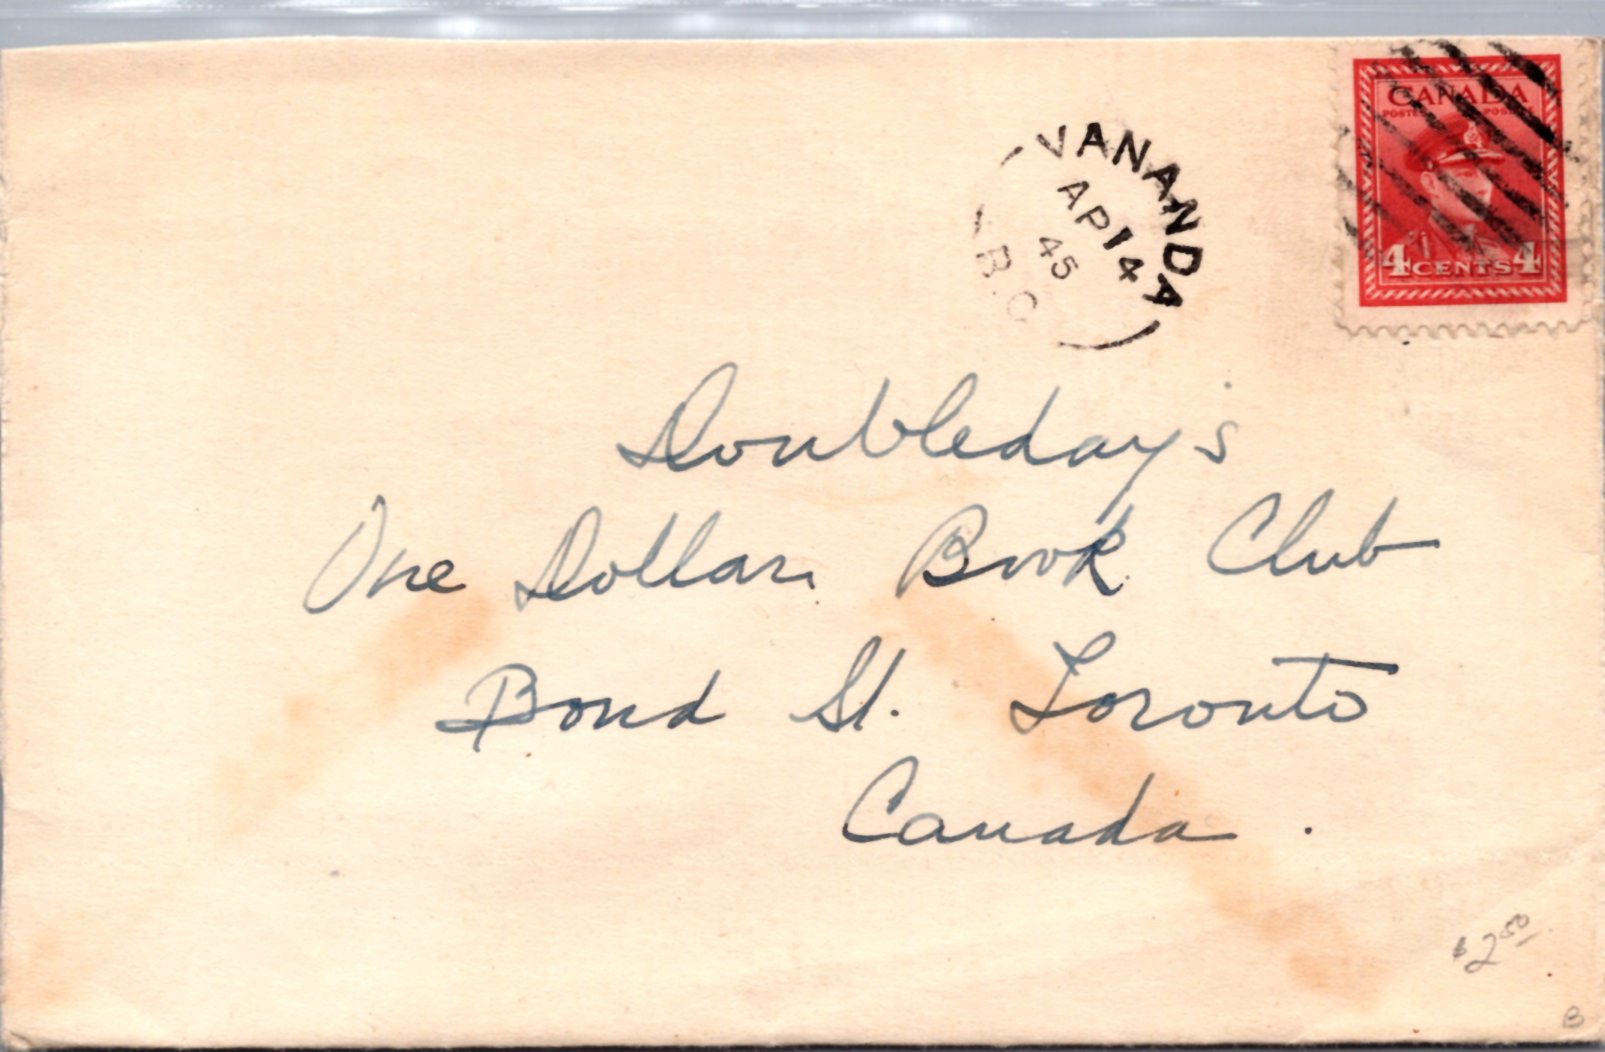 CANADA
POSTES POSTAGE
4 CENTS 4
VANANDA
AP 14
45
B.C.
Doubleday's
One Dollar Book Club
Bond St. Toronto
Canada.
$2.50
B